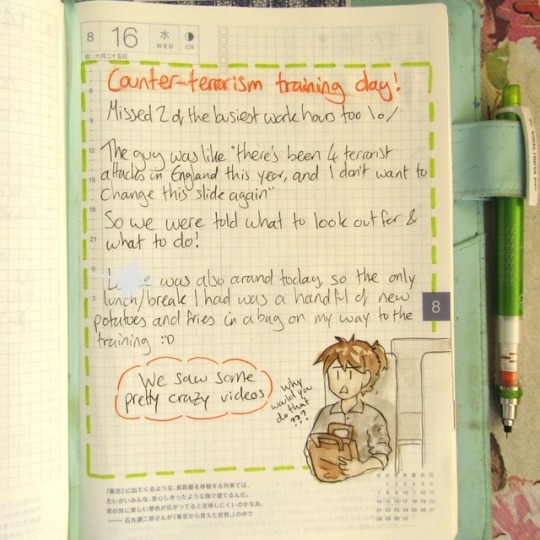 8 16 水
WED
Counter-terrorism training day!
Missed 2 of the busiest work hours too \o/
The guy was like "there's been 4 terrorist
attacks in England this year, and I don't want to
change this slide again"
So we were told what to look out for &
what to do!
was also around today, so the only
lunch/break I had was a handful of new
potatoes and fries in a bag on my way to the
training :'D
We saw some
pretty crazy videos
why
would you
do that
???
8
『車窓』に出てくるような、長距離を移動する列車では、
たいがいみんな、安心しきったような顔で寝てるんだ。
窓の外に美しい景色が広がってると苦悔しにくいのかなあ。